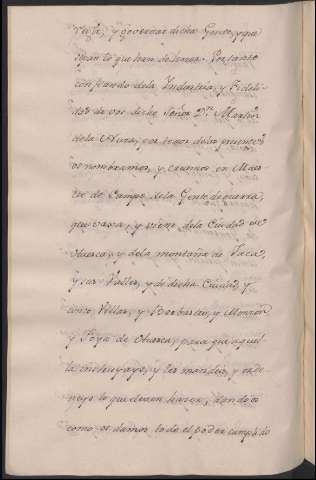 regir, y governar dicha Gente, y que
sepan lo que han de hacer. Por tanto
confiando de la Industria, y Fideli-
dad de vos dicho Señor Dn. Martin
de la Nuza, por tenor de la presente
os nombramos, y creamos en Maes-
tre de Campo de la Gente de guerra,
que vaia, y viene de la Ciudad de
Huesca, y de la montaña de Jaca,
y sus Valles, y de dicha Ciudad, y
cinco Villas, y Barbastro, y Monzon
y Joya de Huesca, para que aquel-
la instruyays, y les mandeis, y orde-
neys lo que devan hacer, dandoos
como os damos todo el poder cumplido